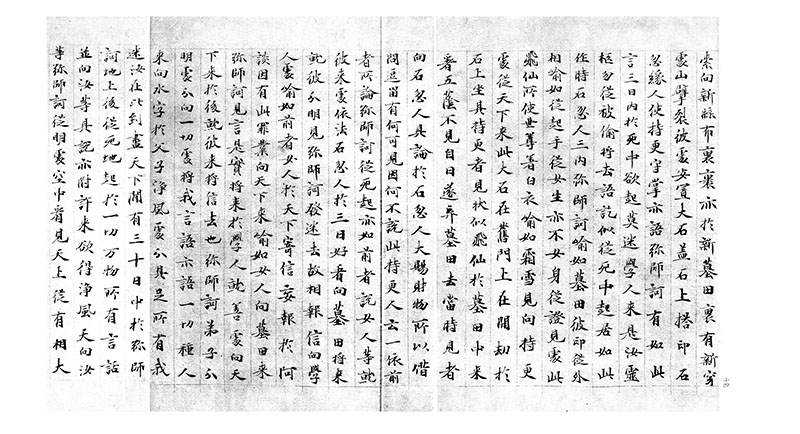 索向新縣布裹裹亦於新墓田裏有新穿
處山擘裂彼處安置大石蓋石上搭印石
忽緣人使持更守掌亦語弥師訶有如此
言三日內於死中欲起莫迷學人來是汝靈
柩勿從被偷將去語訖似從死中起居如此
作時石忽人三內弥師訶喻如墓田彼印從外
相喻如從起手從女生亦不女身從證見處此
飛仙所使世尊著白衣喻如霜雪見向持更
處從天下來此大石在舊門上在開劫於
石上坐其持更者見狀似飛仙於墓田中來
著五蔭不見自日遂弃墓田去當時見者
向石忽人具論於石忽人大賜財物所以借
問逗留有何可見因何不說此持更人云一依前
者所論弥師訶從死起亦如前者說女人等就
彼來處依法石忽人於三日好看向墓田將來
就彼分明見弥師訶發迷去故相報信向學
人處喻如前者女人於天下寄信妄報於阿
談因有此罪業向天下來喻如女人向墓田來
弥師訶見言是實將來於學人就善處向天
下來於後就彼來將信去也弥師訶弟子分
明處分向一切處將我言語示語一切種人
來向水字於父子淨風處分具足所有我
迷汝在比到盡天下聞有三十日中於弥師
訶地上後從死地起於一切万物所有言話
並向汝等具說亦附許來欲得淨風天向汝
等弥師訶從明處空中看見天上從有相大